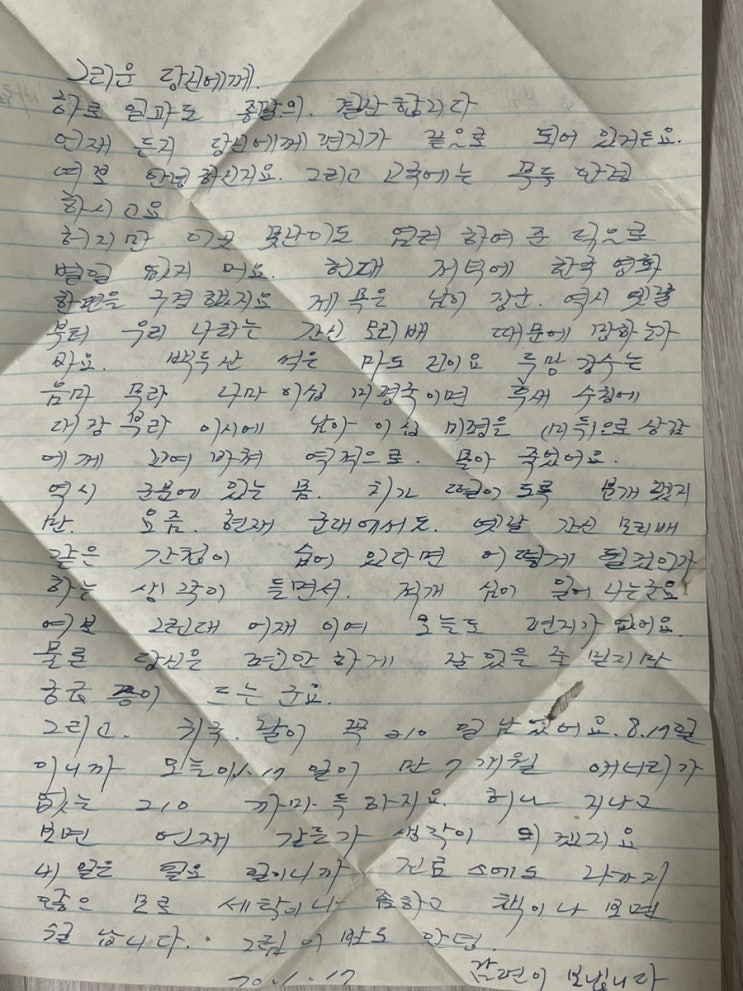 그리운 당신에게.
하로 일과도 종말의. 결산 합니다
언재 든지 당신에게 편지가 끝으로 되어 있거든요.
여보 안녕 하신지요. 그리고 고국에는 모두 안영
하시고요
허지만 이곳 못난이도 염려 하여 준 덕으로
별일 없지 머요. 헌대 저녁에 한국 영화
한편을 구경 했지요 제 목은 남이 장군. 역시 옛날
부터 우리 나라는 간신 모리배 때문에 망하는가
봐요. 백두산 석은 마도 진이요 두만 강수는
음마 무라 남아 이십 미평국이면 후세 수칭에
대장 부라 이시에 남아 이십 미평을 (미득)으로 상감
에게 꼬여 바쳐 역적으로. 몰아 죽었어요.
역시 군문에 있는 몸. 치가 떨이 도록 분개 했지
만. 요즘. 현재 군대에서도. 옛날 간신 모리배
같은 간첩이 숨어 있다면 어떻게 될것인가
하는 생각이 들면서. 적개 심이 일어 나는군요
여보 그런대 어재 이여 오늘도 편지가 없어요.
물론 당신은 편안 하게 잘 있을 줄 믿지만
궁금 증이 드는 군요.
그리고. 귀국. 날이 꼭 210 일 남었어요. 8.17일
이니까 오늘이1.17 일이 만 7 개월 에너리가
없는 210 까마 득 하지요. 허나 지나고
보면 언재 간는가 생각이 되 겠지요
내 일은 일요 일이니까 진료 소에도 나가지
않은 므로 세탁이나 좀하고 책이나 보면
수일 납니다. 그럼 이 밤도 안녕.
70.1.17 남편이 보냅니다